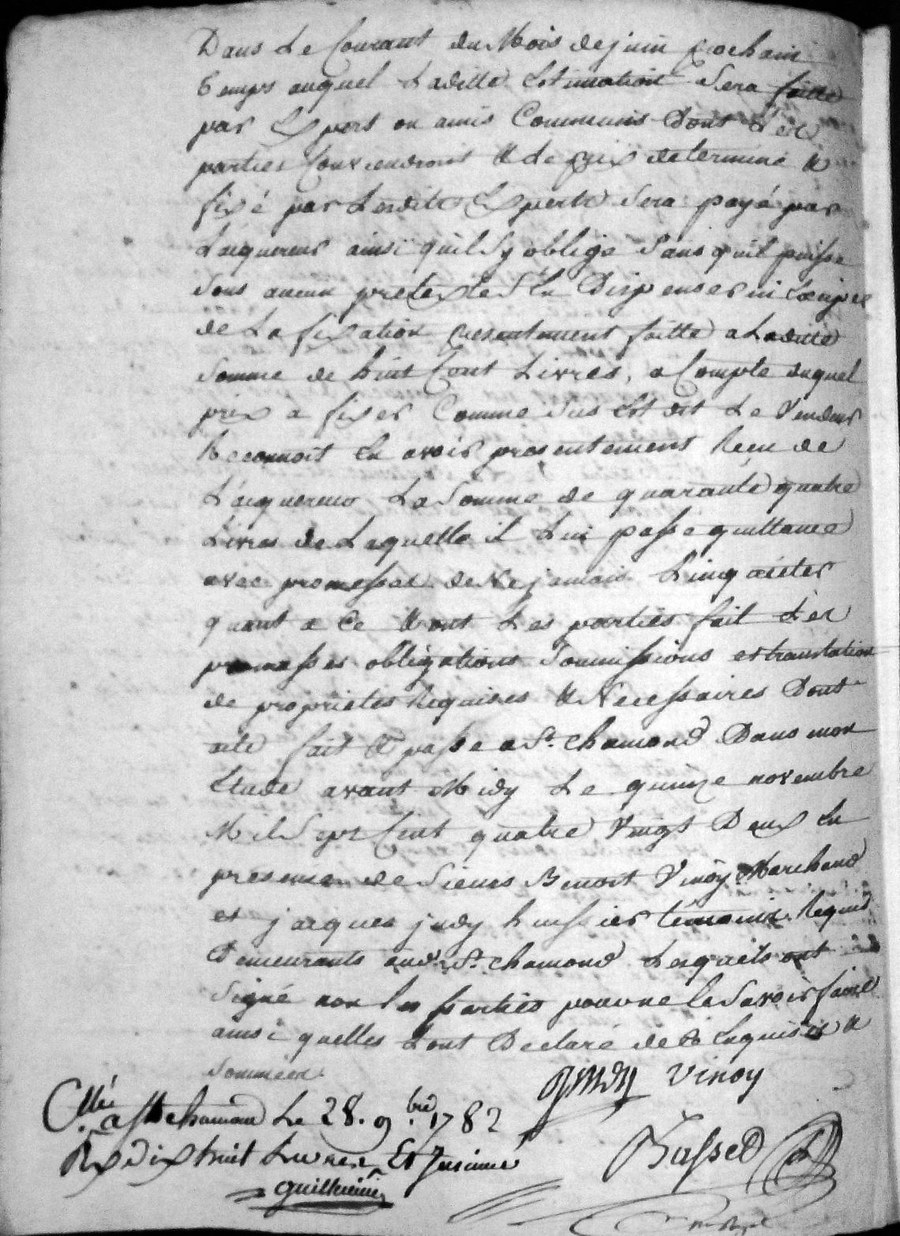 Dans Le Courant du Mois de juin prochain
temps auquel Laditte Estimation Sera faitte
par Expert ou amis Communs Dont Les
parties Conviendront & Le prix determiné &
fixé par Lesdits Experts Sera payé par
L'acquereur ainsi qu'il Sy oblige Sans qu'il puisse
Sous aucun pretexte S'En Dispenser ni
de La fixation presentement faitte a Laditte
Somme de huit Cent Livres, a Compte duquel
prix a fixer Comme Sus Est dit Le Vendeur
Reconnoit En avoir presentement Reçu de
L'acquereur La Somme de quarante quatre
Livres de Laquelle il Lui passe quittance
avec promesse de Ne jamais L'inquieter
quant a Ce & ont Les parties fait Les
promesses obligations Soumissions et translation
de proprietes Requises & Necessaires Dont
acte fait & passé a St. chamond Dans mon
Etude avant Midy Le quinze novembre
Mil Sept Cent quatre Vingt Deux En
presence de Sieurs Benoit Vinoy Marchand
et jacques judy huissier temoins Requis
Demeurants aud. St. chamond Lesquels ont
Signé non Les parties pour ne le Savoir faire
ainsi quelles L'ont Déclaré de ce Enquises &
Sommées
judy Vinoy
Cllé a St chamond Le 28. 9.bre 1782
Rx dix huit Livres Et
guilhermin
Basset